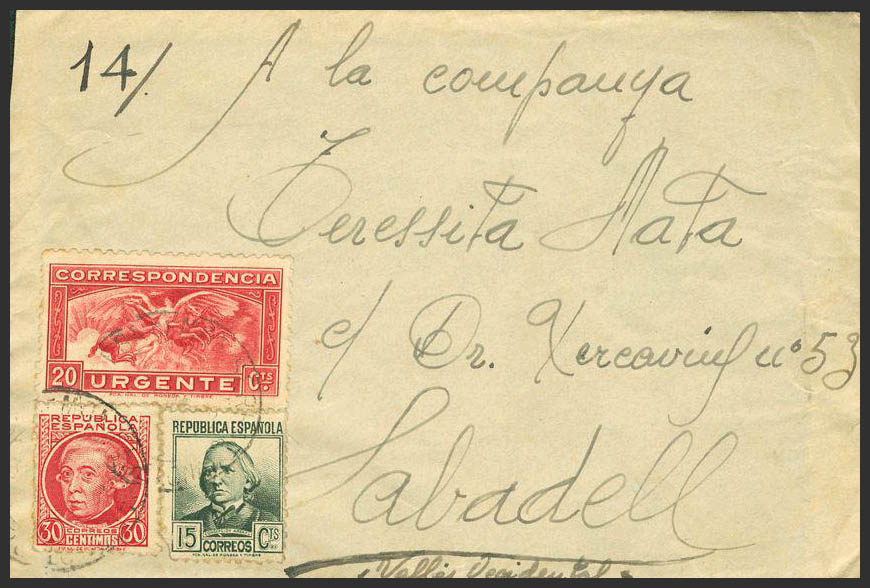 14/.
A la companya
Teressita Mata
c/ Dr. Xercavins nº 53
Sabadell
Vallès Occidental
CORRESPONDENCIA
20 URGENTE Cts.
REPUBLICA
ESPAÑOLA
30 CORREOS 30
CENTIMOS
REPUBLICA ESPAÑOLA
15 CORREOS Cts